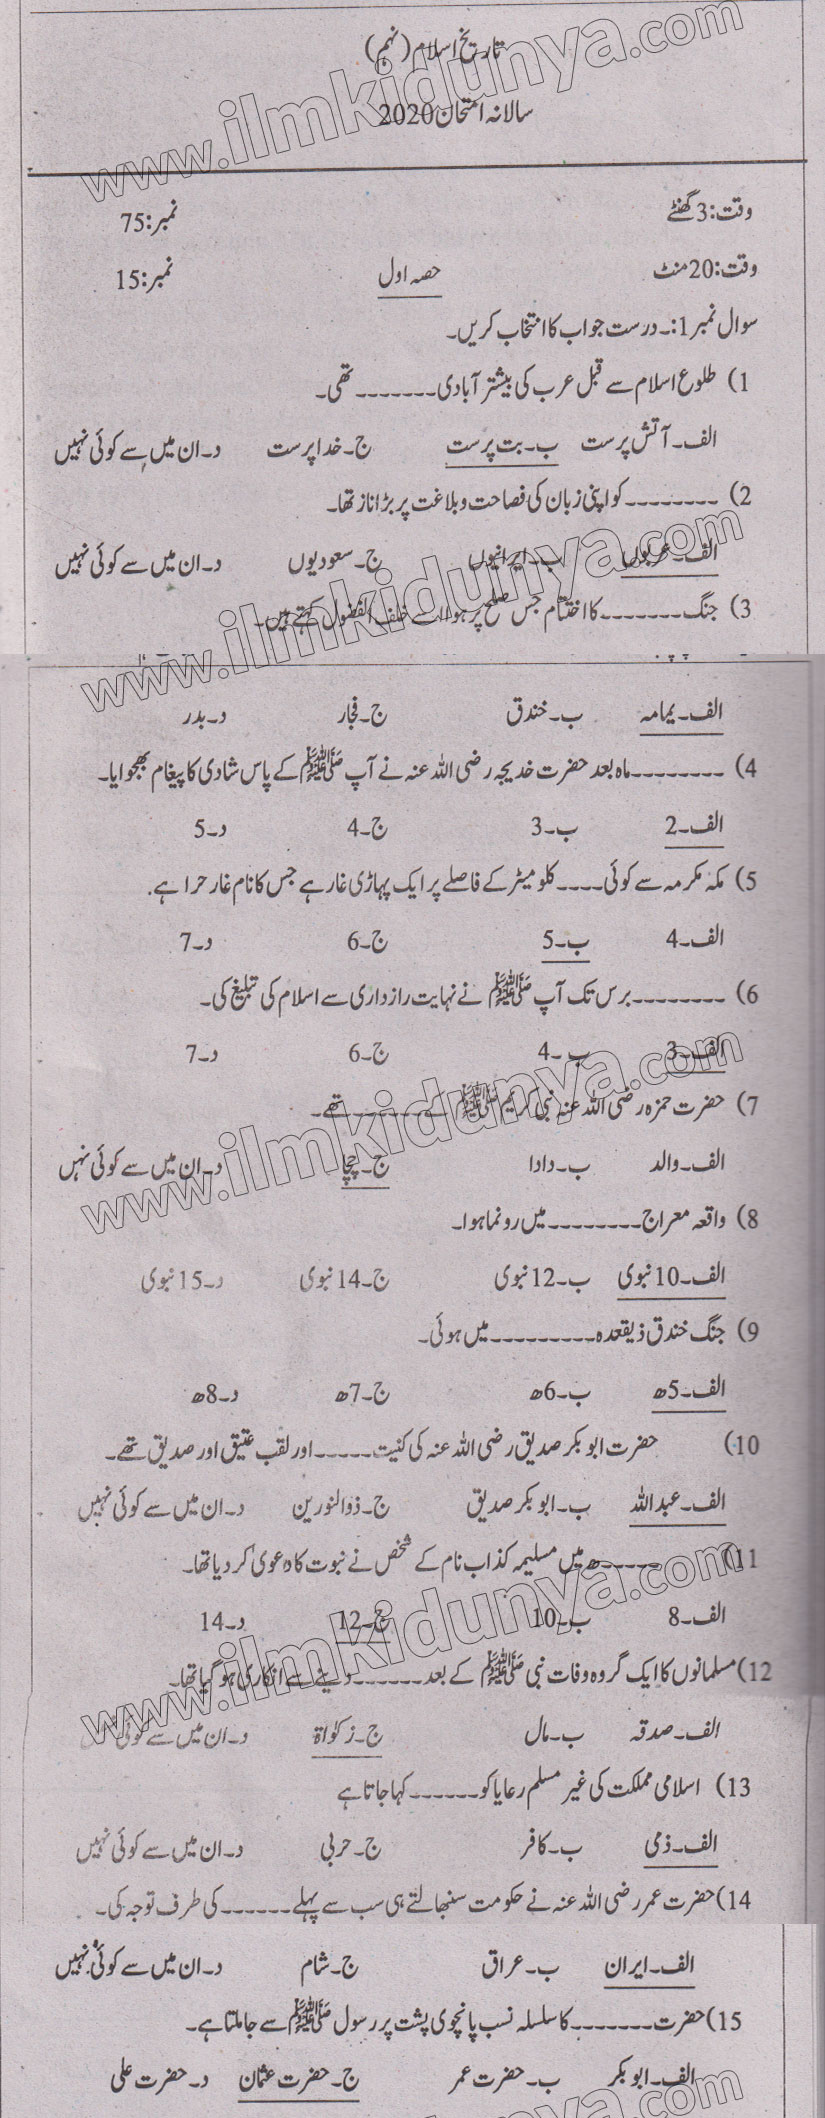 تاریخ اسلام (نہم)
سالانہ امتحان 2020
وقت: 3 گھنٹے نمبر: 75
وقت: 20 منٹ حصہ اول نمبر: 15
سوال نمبر 1:۔ درست جواب کا انتخاب کریں۔
1) طلوع اسلام سے قبل عرب کی بیشتر آبادی۔۔۔۔۔۔۔ تھی۔
الف۔ آتش پرست ب۔ بت پرست ج۔ خدا پرست د۔ ان میں سے کوئی نہیں
2) ۔۔۔۔۔۔۔۔ کو اپنی زبان کی فصاحت و بلاغت پر بڑا ناز تھا۔
الف۔ عربوں ب۔ ایرانیوں ج۔ سعودیوں د۔ ان میں سے کوئی نہیں
3) جنگ۔۔۔۔۔۔۔ کا اختتام جس صلح پر ہوا اسے حلف الفضول کہتے ہیں۔
الف۔ یمامہ ب۔ خندق ج۔ فجار د۔ بدر
4) ۔۔۔۔۔۔۔۔ ماہ بعد حضرت خدیجہ رضی اللہ عنہ نے آپ ﷺ کے پاس شادی کا پیغام بھجوایا۔
الف۔ 2 ب۔ 3 ج۔ 4 د۔ 5
5) مکہ مکرمہ سے کوئی۔۔۔۔ کلومیٹر کے فاصلے پر ایک پہاڑی غار ہے جس کا نام غار حرا ہے.
الف۔ 4 ب۔ 5 ج۔ 6 د۔ 7
6) ۔۔۔۔۔۔۔۔ برس تک آپ ﷺ نے نہایت رازداری سے اسلام کی تبلیغ کی۔
الف۔ 3 ب۔ 4 ج۔ 6 د۔ 7
7) حضرت حمزہ رضی اللہ عنہ نبی کریم ﷺ کے۔۔۔۔۔۔۔ تھے۔
الف۔ والد ب۔ دادا ج۔ چچا د۔ ان میں سے کوئی نہں
8) واقعہ معراج۔۔۔۔۔۔۔۔ میں رونما ہوا۔
الف۔ 10 نبوی ب۔ 12 نبوی ج۔ 14 نبوی د۔ 15 نبوی
9) جنگ خندق ذیقعدہ۔۔۔۔۔۔۔۔۔ میں ہوئی۔
الف۔ 5ھ ب۔ 6ھ ج۔ 7ھ د۔ 8ھ
10) حضرت ابوبکر صدیق رضی اللہ عنہ کی کنیت۔۔۔۔۔ اور لقب عتیق اور صدیق تھے۔
الف۔ عبداللہ ب۔ ابوبکر صدیق ج۔ ذوالنورین د۔ ان میں سے کوئی نہیں
11) ۔۔۔۔۔۔ھ میں مسلیمہ کذاب نام کے شخص نے نبوت کا دعویٰ کر دیا تھا۔
الف۔ 8 ب۔ 10 ج۔ 12 د۔ 14
12) مسلمانوں کا ایک گروہ وفات نبی ﷺ کے بعد۔۔۔۔۔۔ دینے سے انکاری ہو گیا تھا۔
الف۔ صدقہ ب۔ مال ج۔ زکواۃ د۔ ان میں سے کوئی
13) اسلامی مملکت کی غیر مسلم رعایا کو۔۔۔۔۔۔ کہا جاتا ہے
الف۔ ذمی ب۔ کافر ج۔ حربی د۔ ان میں سے کوئی نہیں
14) حضرت عمر رضی اللہ عنہ نے حکومت سنبھالتے ہی سب سے پہلے۔۔۔۔۔۔ کی طرف توجہ کی۔
الف۔ ایران ب۔ عراق ج۔ شام د۔ ان میں سے کوئی نہیں
15) حضرت۔۔۔۔۔۔۔ کا سلسلہ نسب پانچوی پشت پر رسول ﷺ سے جا ملتا ہے۔
الف۔ ابوبکر ب۔ حضرت عمر ج۔ حضرت عثمان د۔ حضرت علی
www.ilmkidunya.com
www.ilmkidunya.com
www.ilmkidunya.com
www.ilmkidunya.com